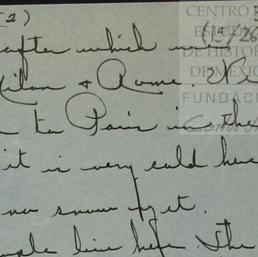 (2)
after which we
Milan & Rome. We
to Paris in the
it is very cold here
no snow yet.
people live here. The
CENTRO
DE HISTOR
DE MEXIC
FUNDAC